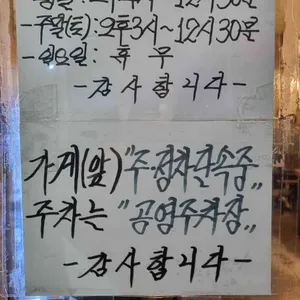 -주말(토): 오후3시~12시30분
-일요일: 휴 무
-감사합니다-
가게(앞) "주·정차단속중"
주차는 "공영주차장"
-감사합니다-